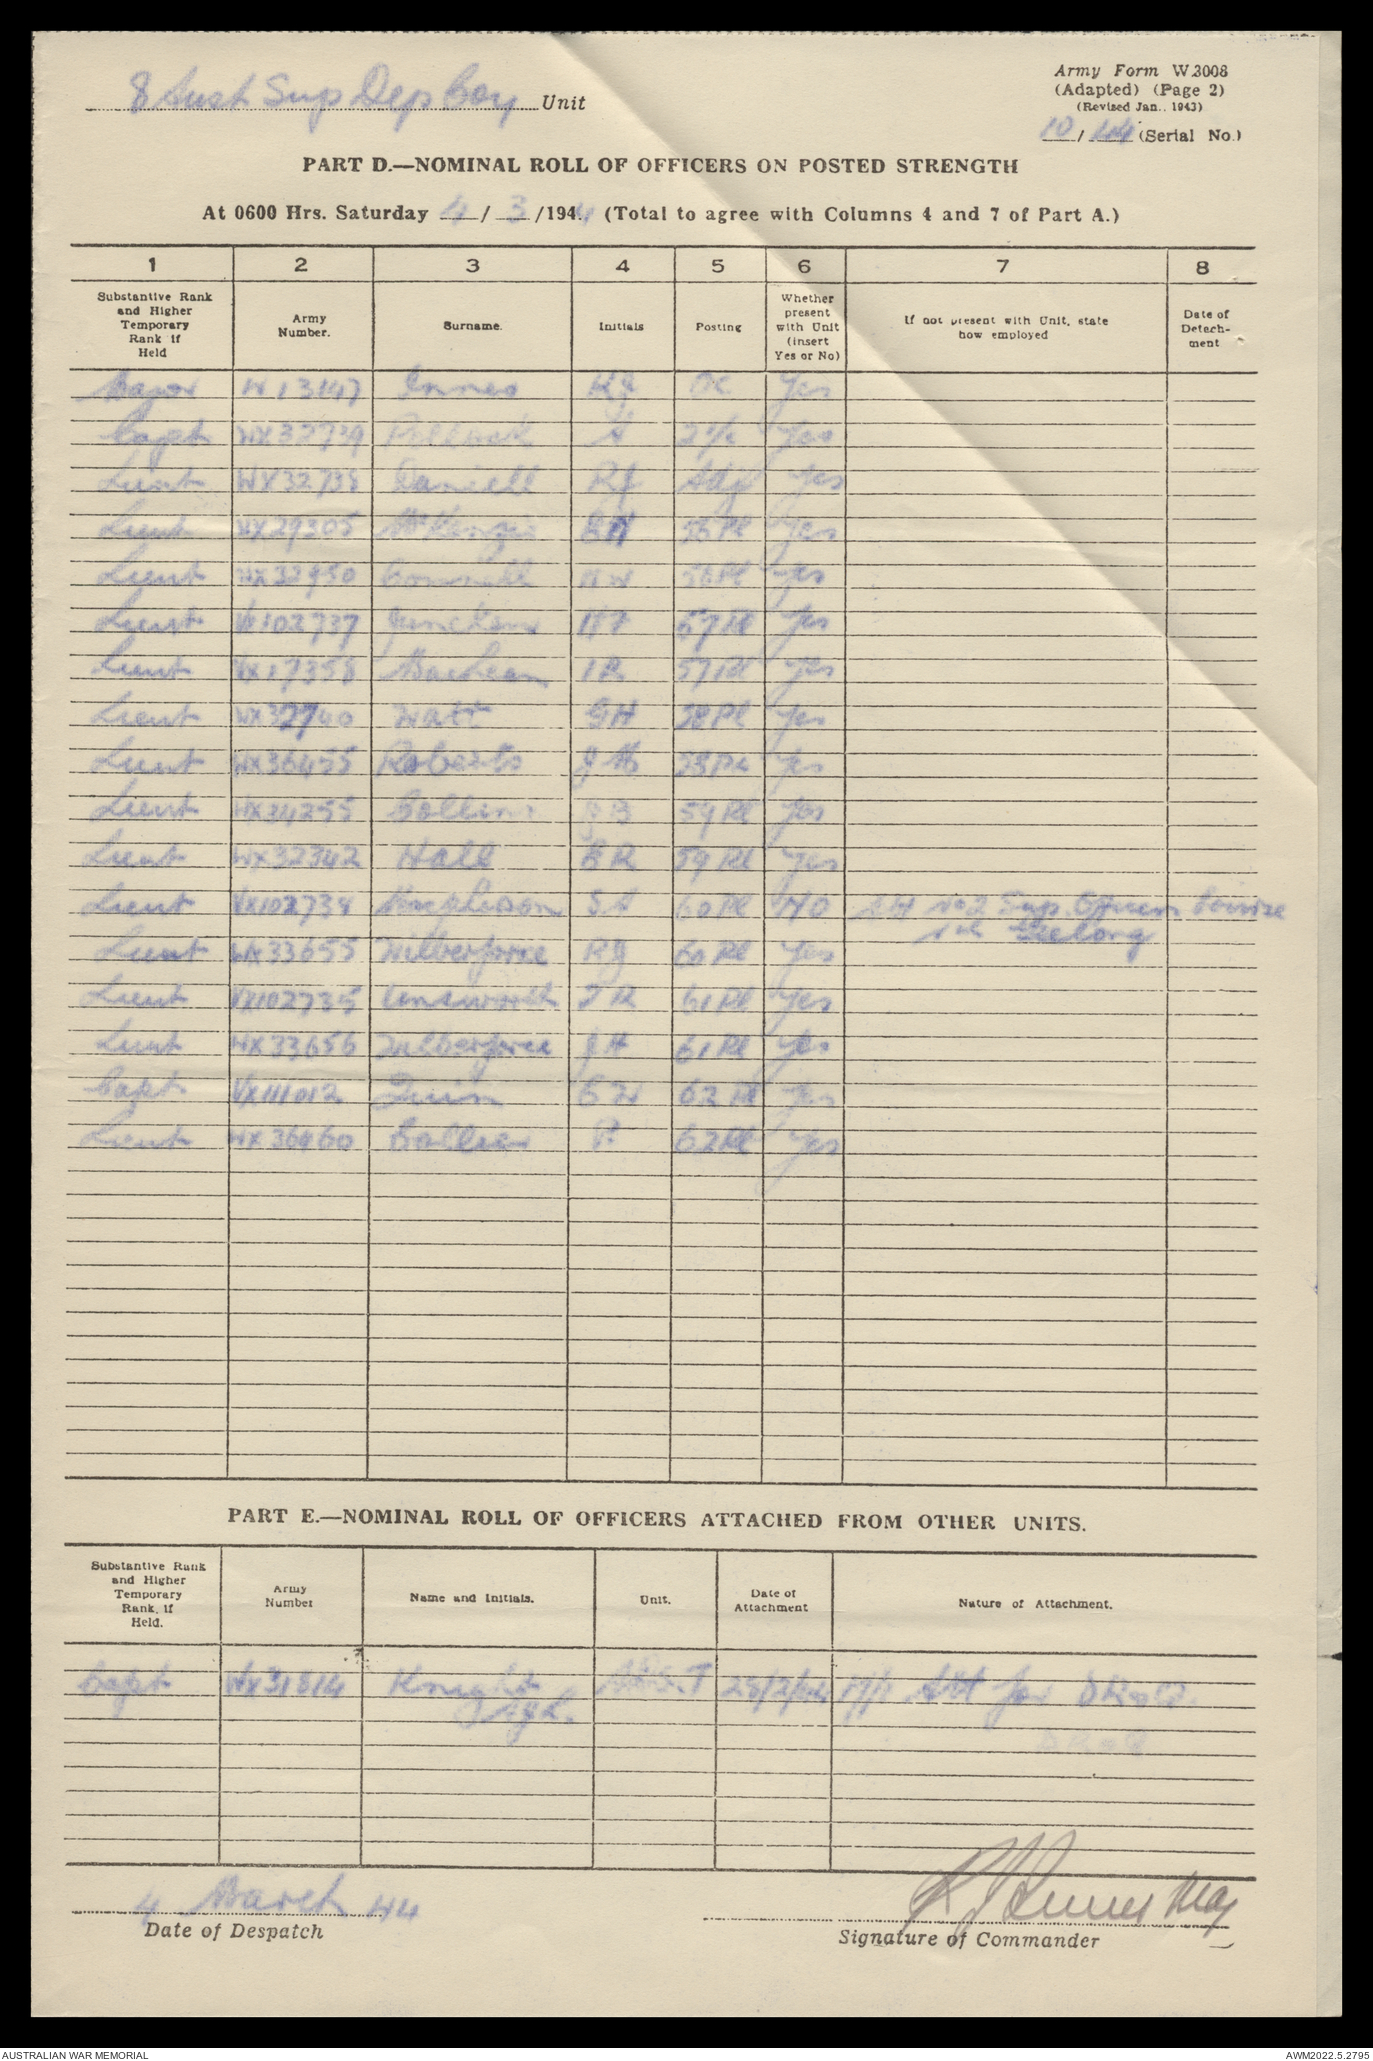 8 Aust Sup Dep Coy Unit
Army Form W.3008
(Adapted) (Page 2)
(Revised Jan., 1943)
10 / 44 (Serial No.)
PART D.—NOMINAL ROLL OF OFFICERS ON POSTED STRENGTH
At 0600 Hrs. Saturday 4 / 3 /1944 (Total to agree with Columns 4 and 7 of Part A.)
1 2 3 4 5 6 7 8
Substantive Rank and Higher Temporary Rank if Held
Army Number.
Surname.
Initials
Posting
Whether present with Unit (insert Yes or No)
If not present with Unit, state how employed
Date of Detech- ment
Major W13147 Innes RJ OC Yes
Capt WX32739 Pollock A 2i/c Yes
Lieut WX32738 Daniell RJ Adj Yes
Lieut WX29305 McKenzie 56 Pl Yes
Lieut WX32950 56 Pl Yes
Lieut VX102737 Junckens 57 Pl Yes
Lieut VX17358 MacLean IR 57 Pl Yes
Lieut WX32740 Watt GH 58 Pl Yes
Lieut WX36455 Roberts JM 58 Pl Yes
Lieut WX34255 Collins JB 59 Pl Yes
Lieut WX32342 Hall BR 59 Pl Yes
Lieut VX102734 Macpherson SA 60 Pl NO Att No 2 Sup Officers Course
Geelong
Lieut WX33655 Wilberforce RJ 60 Pl Yes
Lieut VX102735 Unsworth JR 61 Pl Yes
Lieut WX33656 Wilberforce JH 61 Pl Yes
Capt VX111012 Quinn 62 Pl Yes
Lieut WX36460 Collier P 62 Pl Yes
PART E.—NOMINAL ROLL OF OFFICERS ATTACHED FROM OTHER UNITS.
Substantive Rank and Higher Temporary Rank, if Held.
Army Number
Name and Initials.
Unit.
Date of Attachment
Nature of Attachment.
Capt WX31814 Knight 28/2/44 Att for
AJL.
4 March 44
Date of Despatch
RJ Innes Maj
Signature of Commander
AUSTRALIAN WAR MEMORIAL
AWM2022.5.2795